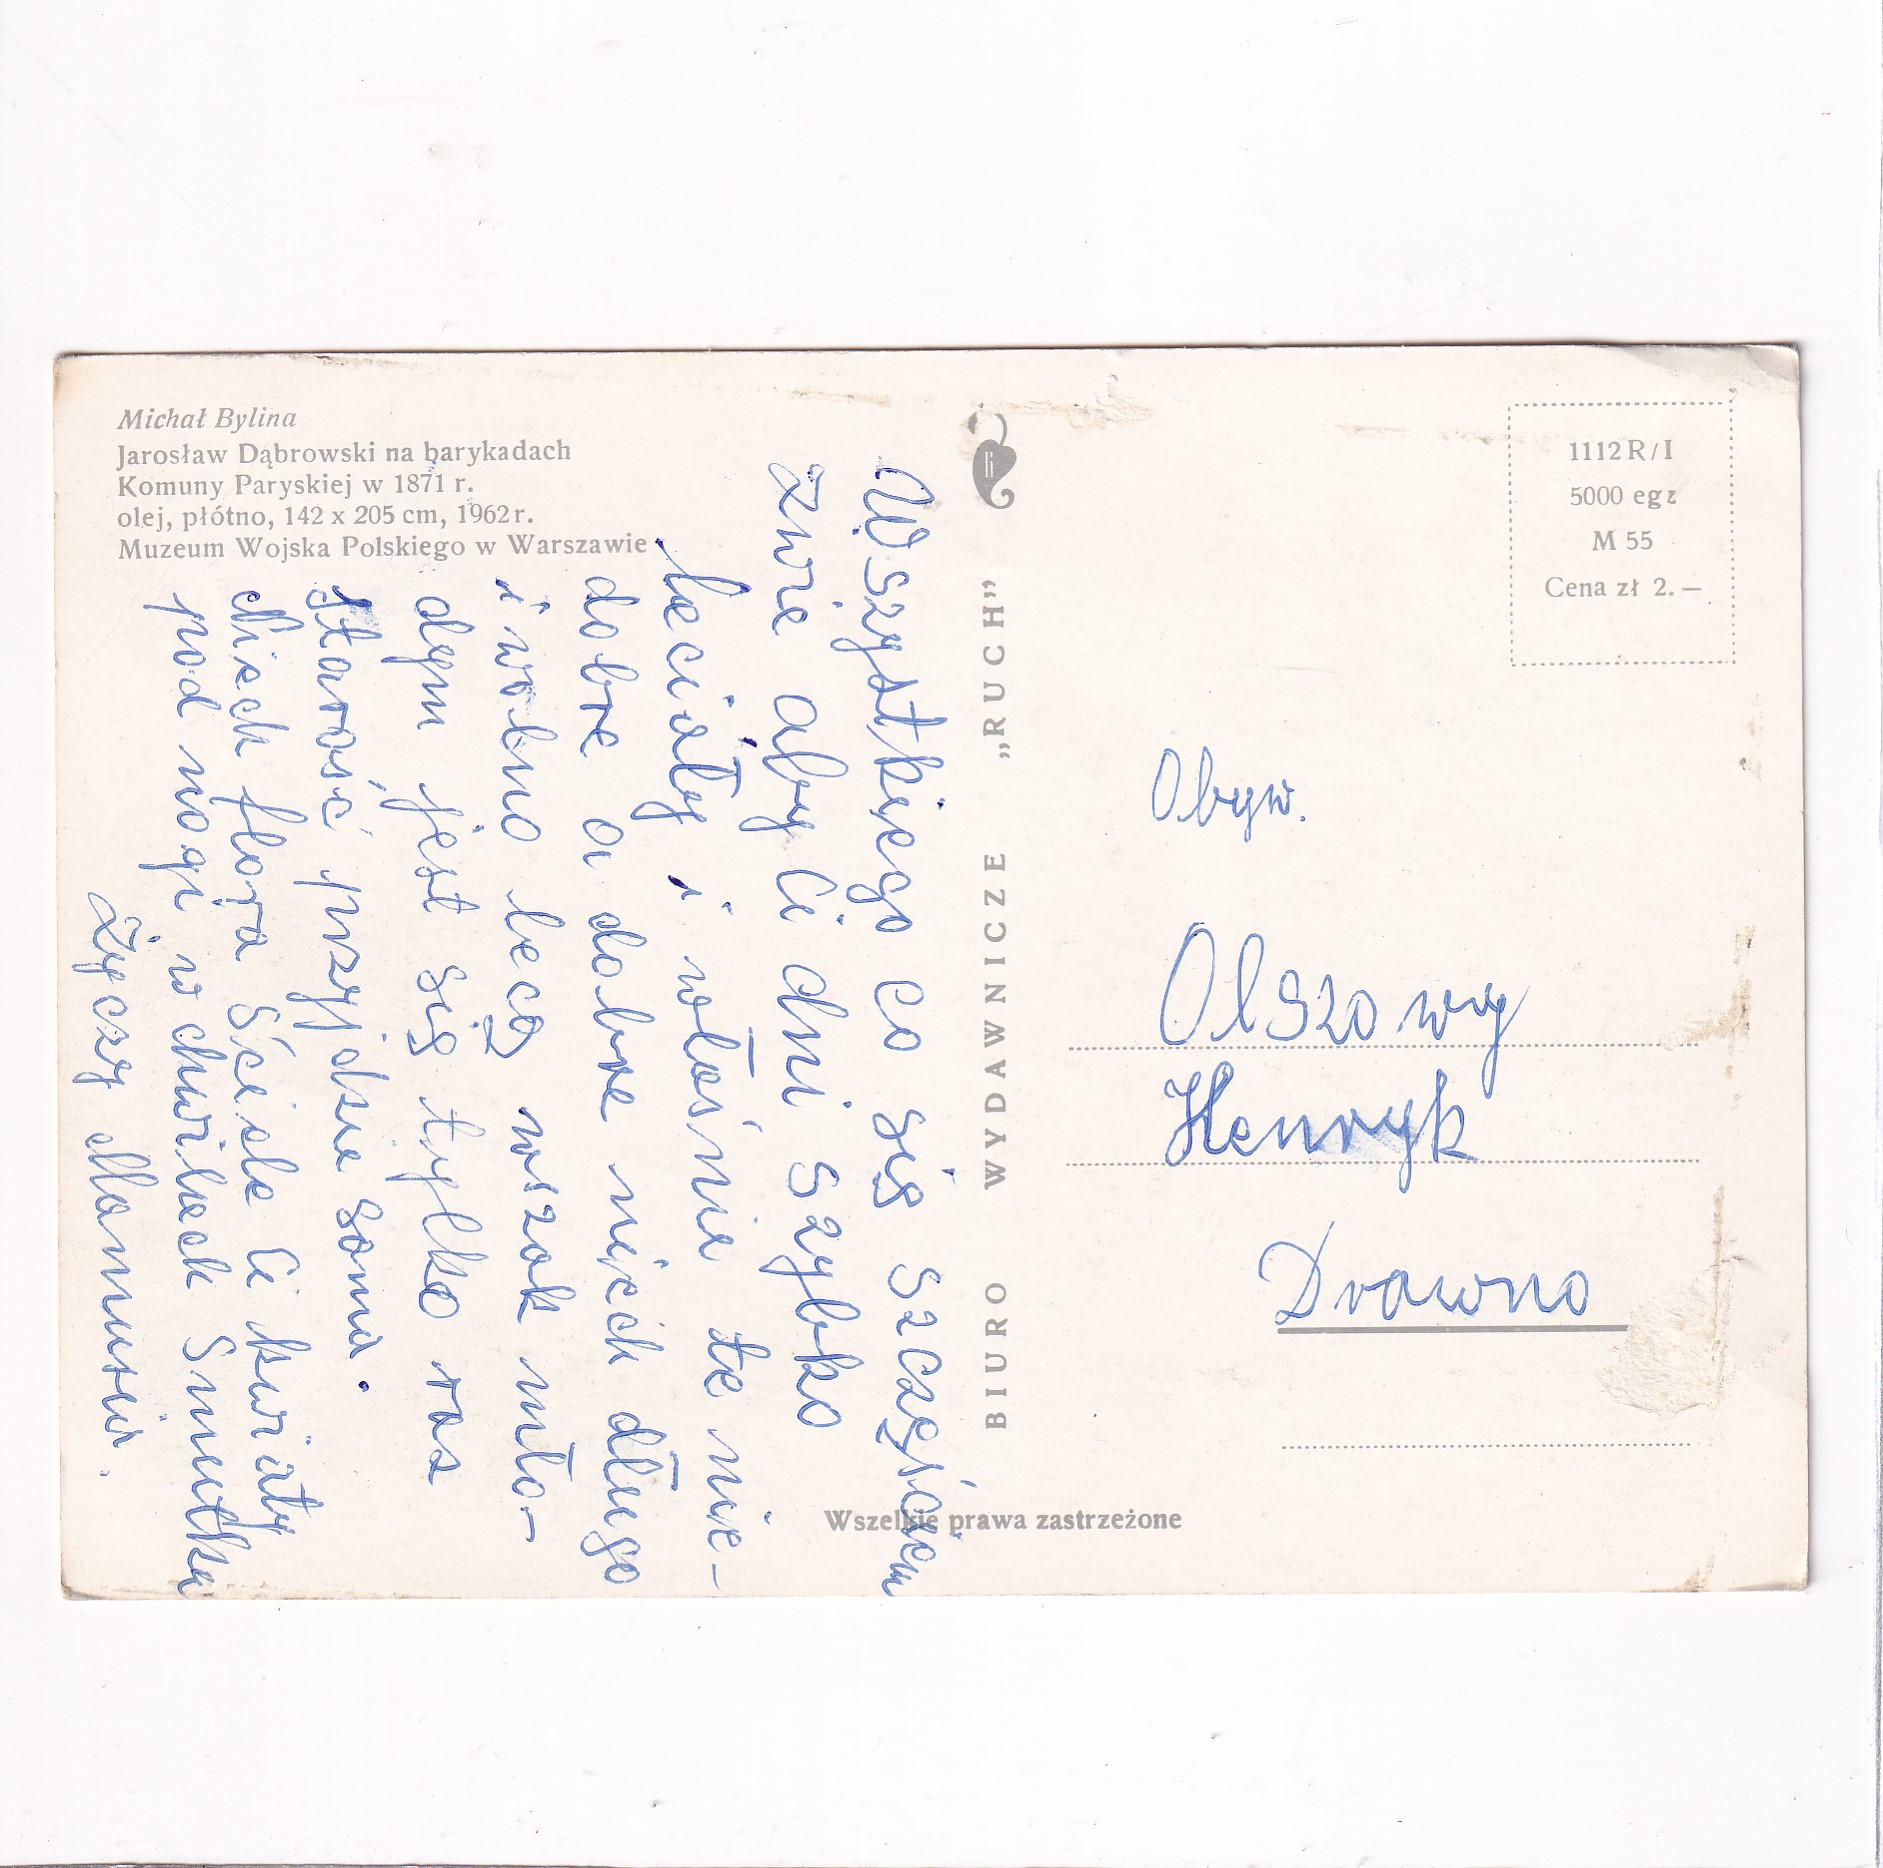 Michał Bylina
Jarosław Dąbrowski na barykadach
Komuny Paryskiej w 1871 r.
olej, płótno, 142 x 205 cm, 1962 r.
Muzeum Wojska Polskiego w Warszawie
Wszystkiego co się szczęściem
zwie aby Ci dni szybko
leciały i właśnie te nie-
dobre a dobre niech długo
i wolno lecą wszak mło-
dym jest się tylko raz
starość przyjdzie sama.
Niech flora ściele Ci kwiaty
pod nogi w chwilach smutku
Życzy Mamusia.
BIURO WYDAWNICZE „RUCH”
Wszelkie prawa zastrzeżone
1112 R/I
5000 egz
M 55
Cena zł 2.—
Obyw.
Olszowy
Henryk
Drawno